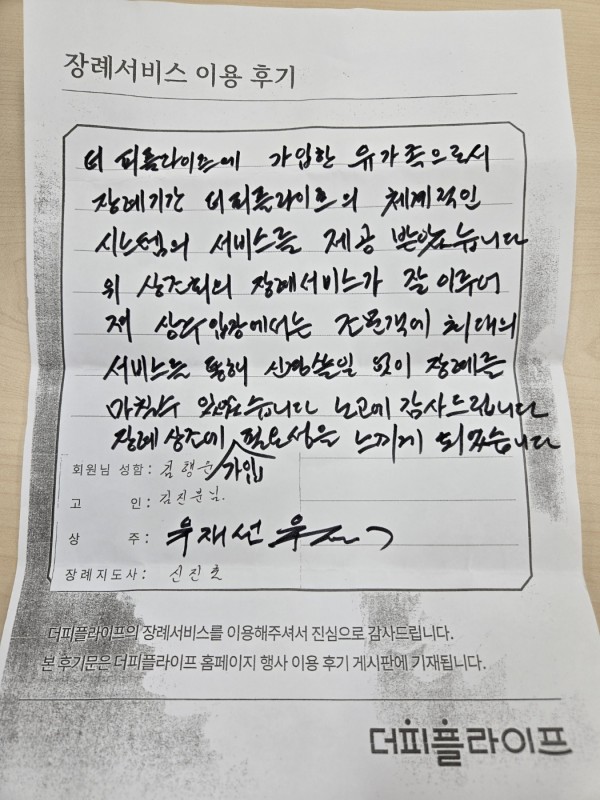 장례서비스 이용 후기
더피플라이프에 가입한 유가족으로서
장례기간 더피플라이프의 체계적인
시스템의 서비스를 제공 받았습니다
위 상조회의 장례서비스가 잘 이루어
져 상주입장에서는 조문객에 최대의
서비스를 통해 신경쓸일 없이 장례를
마칠수 있었습니다 노고에 감사드립니다
장례 상조에 가입 필요성을 느끼게 되었습니다
회원님 성함: 김행운
고 인: 김진분님.
상 주: 우재선
장례지도사: 신진호
더피플라이프의 장례서비스를 이용해주셔서 진심으로 감사드립니다.
본 후기문은 더피플라이프 홈페이지 행사 이용 후기 게시판에 기재됩니다.
더피플라이프